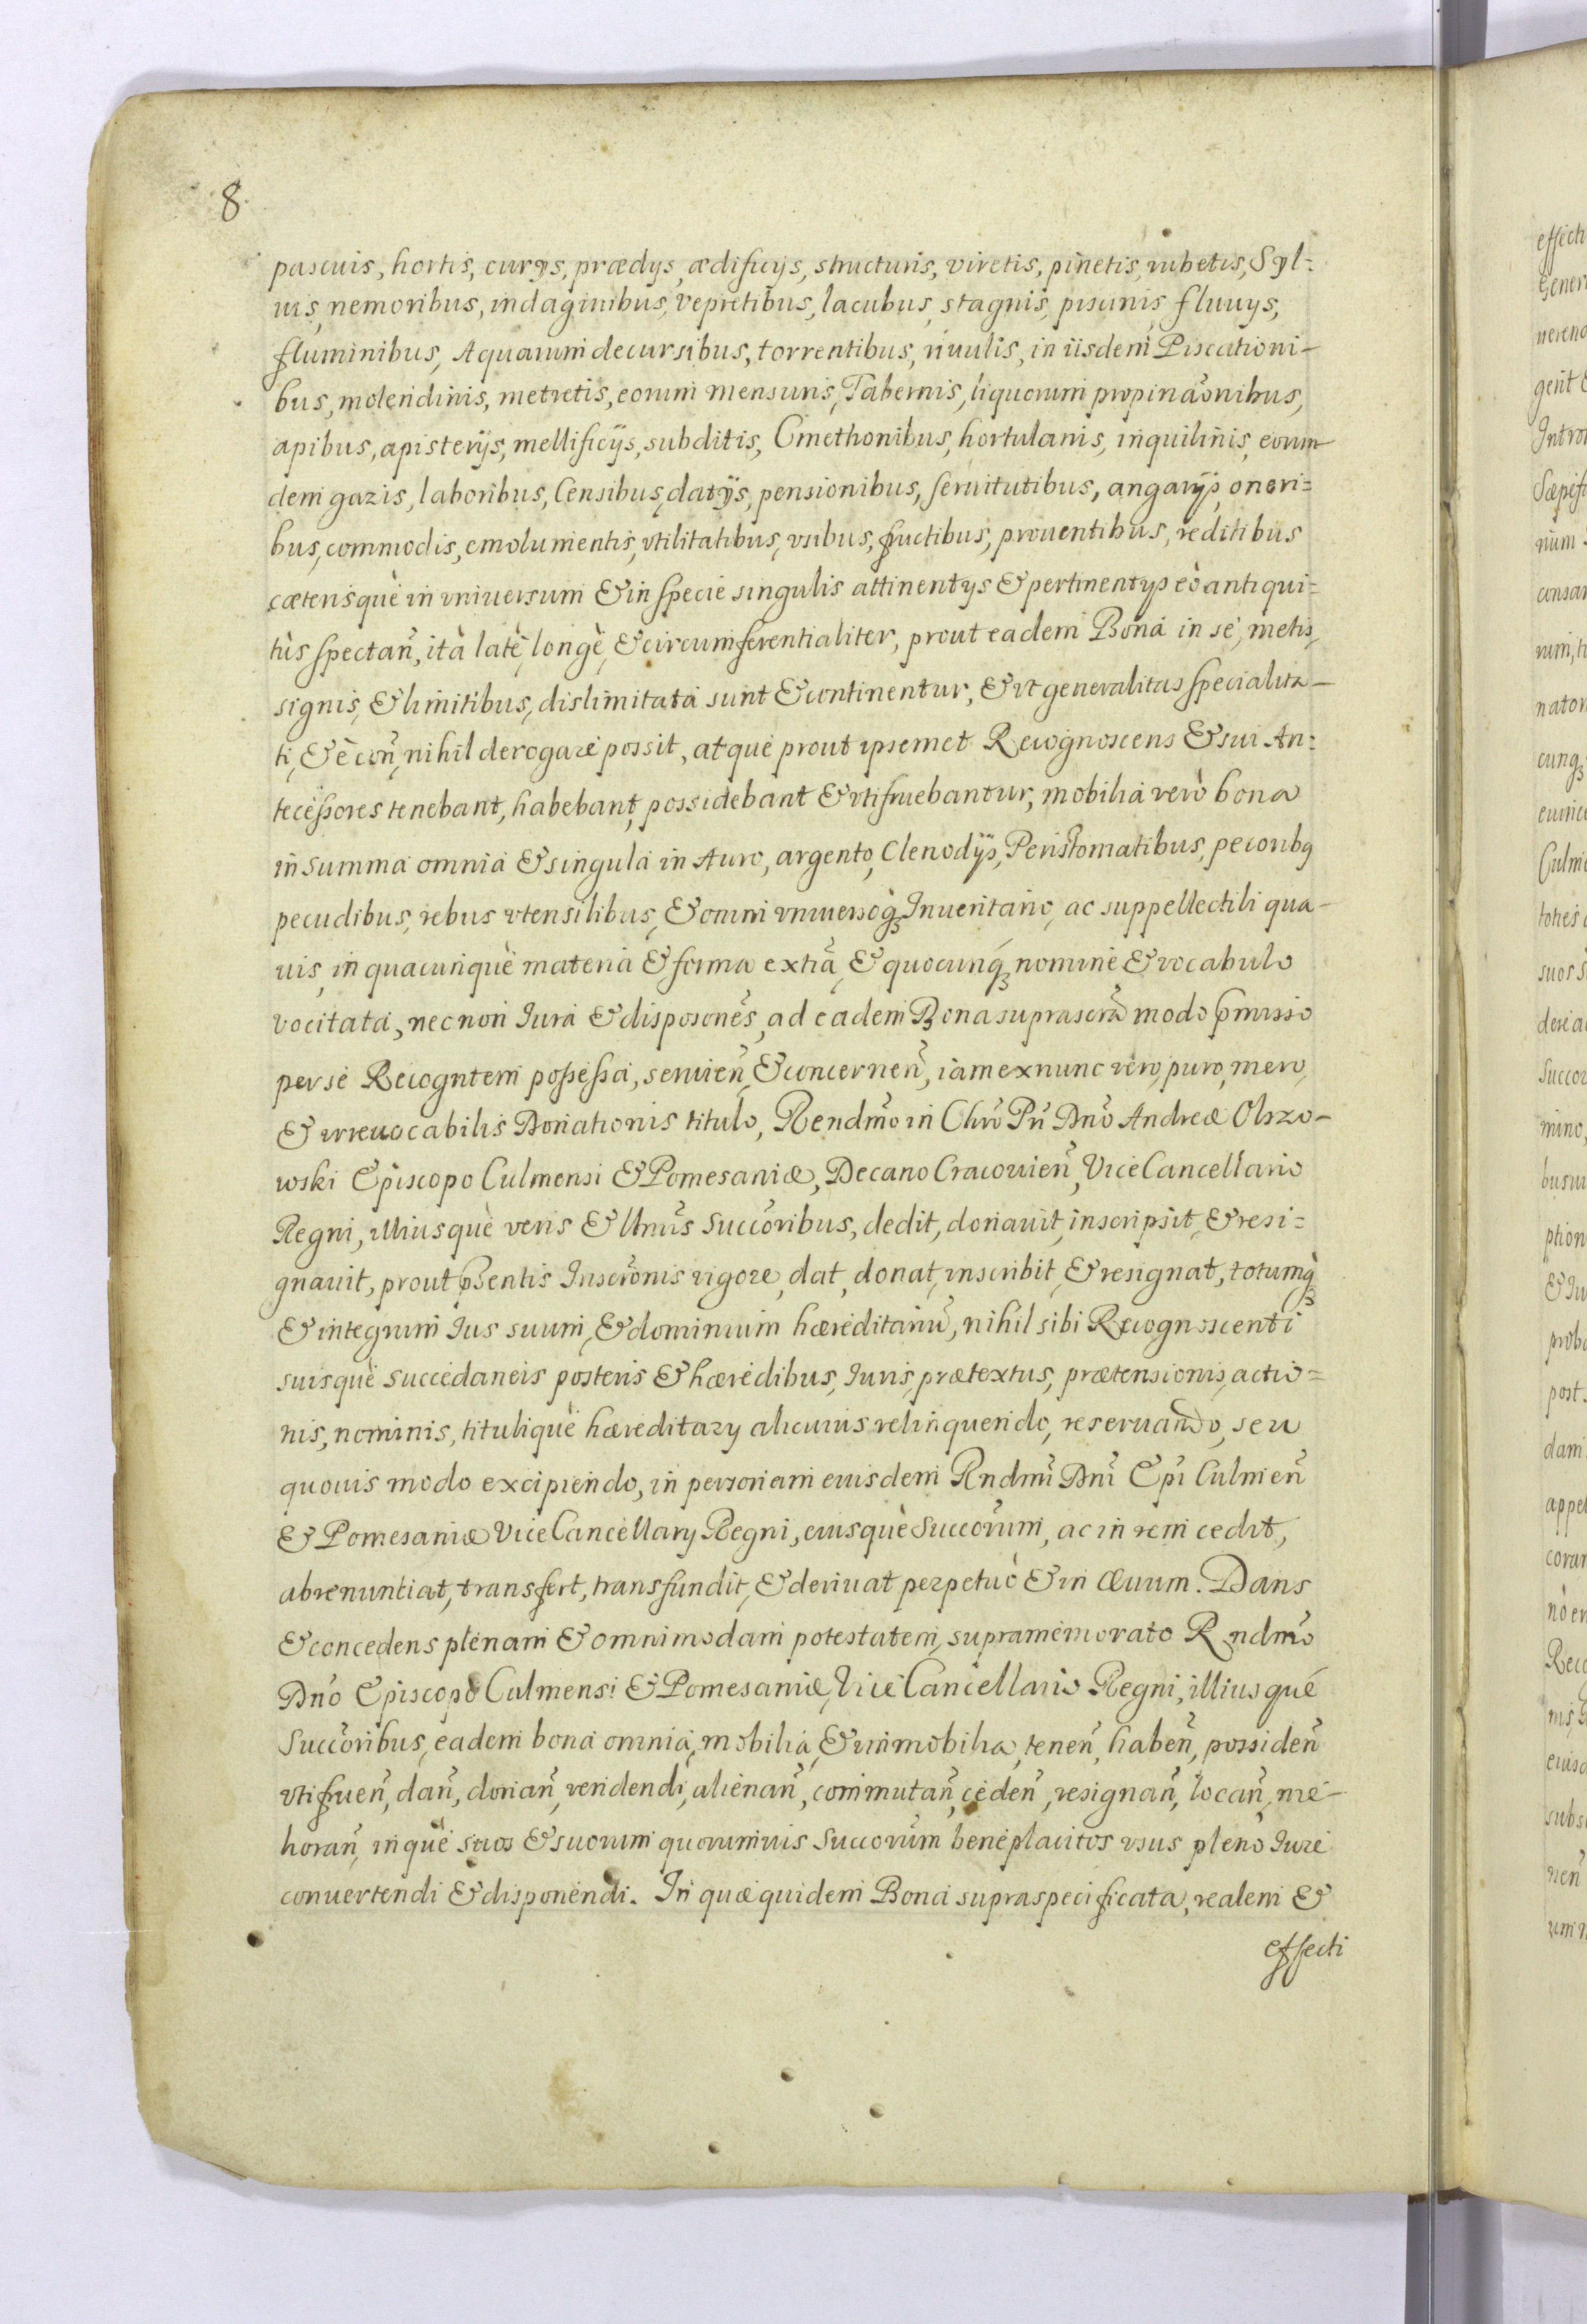 8
pascuis, hortis, curijs, prædijs, ædificijs, structuris, viretis, pinetis, rubetis, Syl=
uis, nemoribus, indaginibus, vepretibus, lacubus, stagnis, piscinis, fluuijs,
fluminibus, Aquarum decursibus, torrentibus, riuulis, in iisdem Piscationi-
bus, molendinis, metretis, eorum mensuris, Tabernis, liquorum propinãonibus,
apibus, apisterijs, mellificijs, subditis, Cmethonibus, hortulanis, inquilinis, eorum-
dem gazis, laboribus, Censibus, datijs, pensionibus, seruitutibus, angarijs, oneri=
bus, commodis, emolumentis, vtilitatibus, vsibus, fructibus, prouentibus, reditibus
cæterisquè in vniuersum & in specie singulis attinentijs & pertinentijs eò antiqui=
tùs spectañ, ità latè, longè, & circumferentialiter, prout eadem Bona in se, metis,
signis, & limitibus, dislimitata sunt & continentur, & vt generalitas specialita-
ti, & è coñ, nihil derogare possit, atque prout ipsemet Recognoscens & sui An=
tecessores tenebant, habebant, possidebant & vtifruebantur, mobilia verò bona
in summa omnia & singula in Auro, argento, Clenodijs, Peristomatibus, pecoribq
pecudibus, rebus vtensilibus, & omni vniuersoq̀ Inuentario, ac suppellectili qua-
uis, in quacunquè materia & forma extiã, & quocunq́ nomine & vocabulo
vocitata, nec non Iura & disposones̃, ad eadem Bona suprascrã modo p̃misso
per se Recogntem possessa, seruieñ, & concerneñ, iam ex nunc vero, puro, mero,
& irreuocabilis Donationis titulo, Rendm̃o in Chrõ Prĩ Dnõ Andreæ Olszo-
wski Episcopo Culmensi & Pomesaniæ, Decano Cracouieñ, ViceCancellario
Regni, illiusquè veris & ltmĩs Succõribus, dedit, donauit, inscripsit, & resi=
gnauit, prout p̃sentis Inscrõnis vigore, dat, donat, inscribit, & resignat, totumq̀
& integrum Ius suum, & dominium hæreditariũ, nihil sibi Recognoscenti
suisquè succedaneis posteris & hæredibus, Iuris, prætextus, prætensionis, actio=
nis, nominis, tituliquè hæreditary alicuius relinquendo, reseruando, seu
quouis modo excipiendo, in personam eiusdem Rndmĩ Dnĩ Epĩ Culmeñ
& Pomesaniæ ViceCancellary Regni, eiusquè Succõrum, ac in rem cedit,
abrenuntiat, transfert, transfundit, & deriuat perpetuò & in æuum. Dans
& concedens plenam & omnimodam potestatem, supramemorato Rndmõ
Dnõ Episcopo Culmensi & Pomesaniæ, Vice Cancellario Regni, illiusqué
Succõribus, eadem bona omnia, mobilia, & immobilia, teneñ, habeñ, possideñ
vtifrueñ, dañ, donañ, vendendi, alienañ, commutañ, cedeñ, resignañ, locañ, me-
liorañ, inquè suos & suorum quorumuis Succorũm beneplacitos vsus pleno Iure
conuertendi & disponendi. In quæ quidem Bona supraspecificata, realem &
effecti